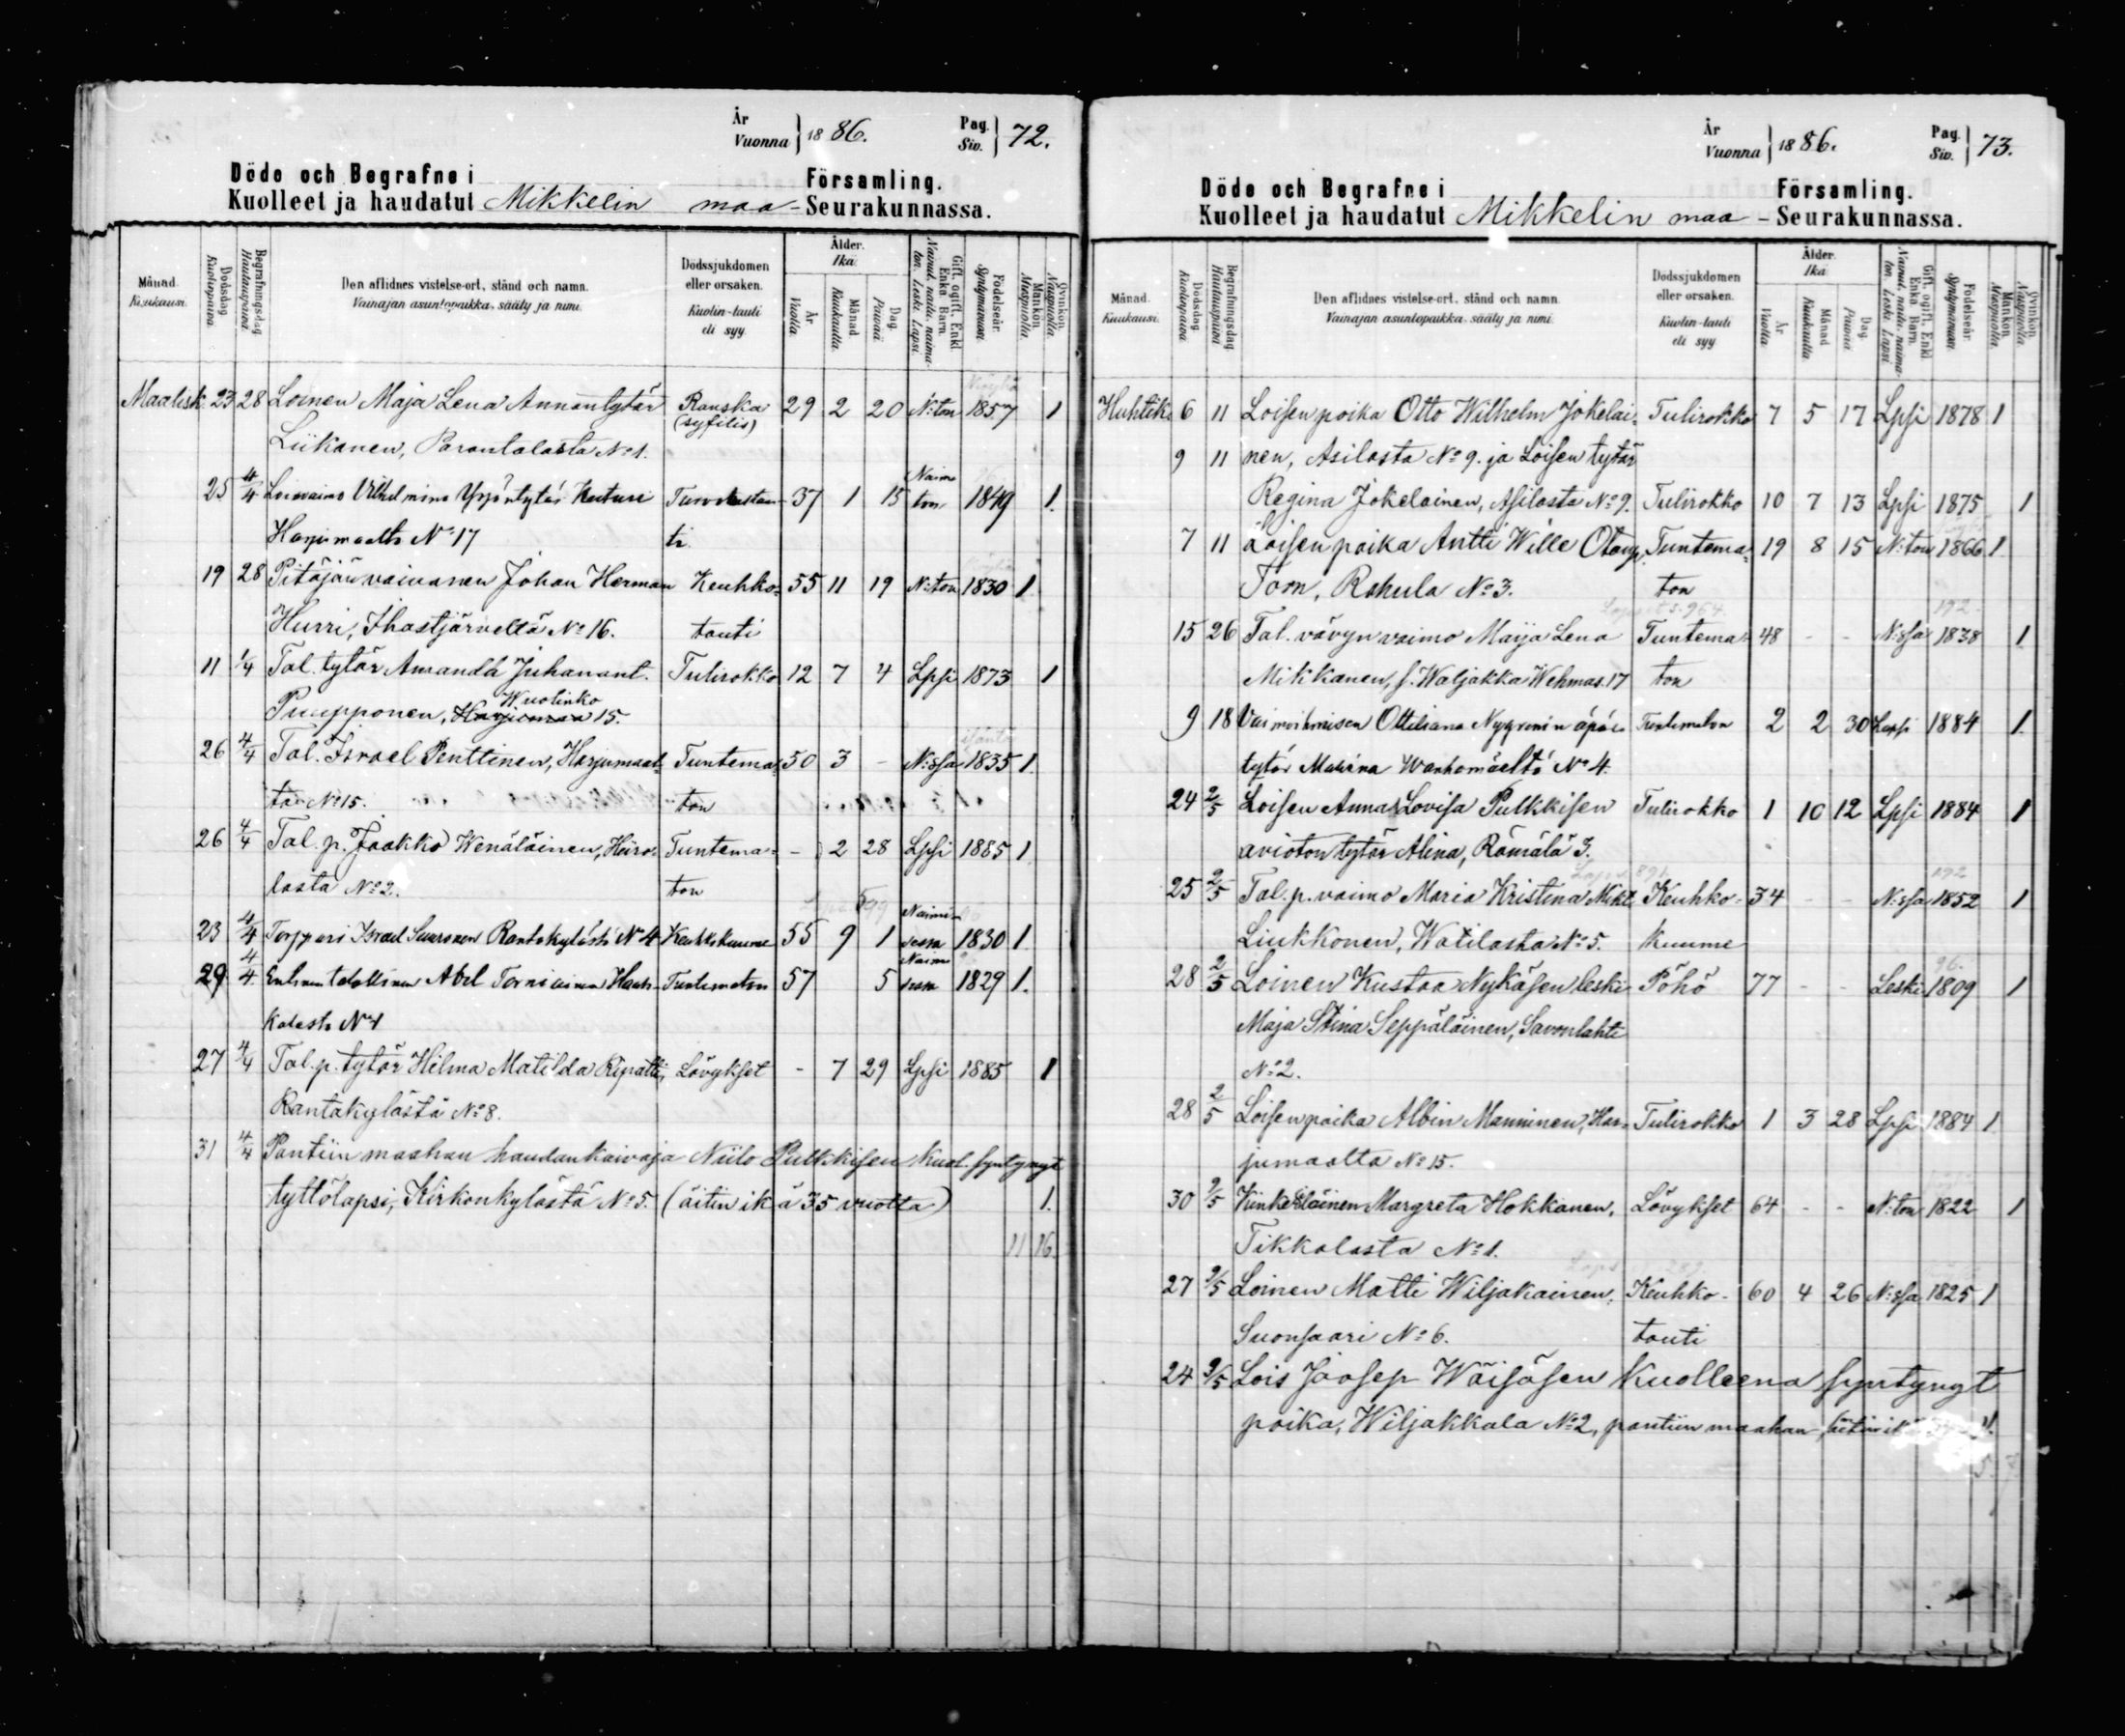 År
Vuonna 1886.
Pag.
Siv. 72.
Döde och Begrafne i Församling.
Kuolleet ja haudatut Mikkelin maa- Seurakunnassa.
Månad. Kuukausi.
Dödsdag Kuolinpäivä.
Begrafningsdag Hautauspäivä.
Den aflidnes vistelse-ort, stånd och namn.
Vainajan asuntopaikka, sääty ja nimi.
Dödssjukdomen eller orsaken.
Kuolin-tauti eli syy.
Ålder.
Ikä.
År Vuotta.
Månad Kuukautta.
Dag. Päivää
Gift, ogift, Enkl. Enka. Barn.
Nainut, naima- ton. Leski. Lapsi.
Födelseår. Syntymävuosi.
Mankön. Miespuolta.
Qvinkön. Naispuolta.
Maalisk. 23 28 Loinen Maja Lena Annantytär Ranska 29 2 20 N:ton 1857 1
(syfilis)
Liikanen, Parantalasta No 1.
25 4/4 Loisvaimo Vilhelmina Yrjöntytär Kuturi 37 1 15 Naimaton 1849 1.
Harjumaalta No 17 ti
19 28 Pitäjän vaivanen Johan Herman Keuhko- 55 11 19 N:ton 1830 1
Hurri, Ihastjärveltä No 16. tauti
11 1/4 Tal. tytär Amanda Juhanant. Tulirokko 12 7 4 Lpsi 1873 1
Puupponen, Harjumaa Wuolinko 15.
26 4/4 Tal. Israel Penttinen, Harjumaal- Tuntema- 50 3 - N:ssa 1835 1.
ta No 15. ton
26 4/4 Tal. p. Jaakko Wenäläinen, Hiiro- Tuntema- - 2 28 Lpsi 1885 1.
lasta No 2. ton
23 4/4 Torppari Israel Suuronen Rantakylästä No 4 Keuhkokuume 55 9 1 Naimisessa 1830 1.
29 4/4 Entinen talollinen Abel Torniainen Hauk- Tuntematon 57 5 1829 1.
kalasta No 1
27 4/4 Tal. p. tytär Hilma Matilda Ripatti, Lävykset - 7 29 Lpsi 1885 1
Rantakylästä No 8.
31 4/4 Pantiin maahan haudankaivaja Niilo Pulkkisen kuol. syntynyt
tyttölapsi, Kirkonkylästä No 5. (äitin ikä 35 vuotta) 1.
11 16.
År
Vuonna 1886.
Pag.
Siv. 73.
Döde och Begrafne i Församling.
Kuolleet ja haudatut Mikkelin maa- Seurakunnassa.
Månad. Kuukausi.
Dödsdag Kuolinpäivä.
Begrafningsdag Hautauspäivä.
Den aflidnes vistelse-ort, stånd och namn.
Vainajan asuntopaikka, sääty ja nimi.
Dödssjukdomen eller orsaken.
Kuolin-tauti eli syy
Ålder.
Ikä.
År Vuotta.
Månad Kuukautta
Dag. Päivää
Gift, ogift, Enkl. Enka. Barn.
Nainut, naima- ton. Leski. Lapsi
Födelseår. Syntymävuosi.
Mankön. Miespuolta.
Qvinkön. Naispuolta.
Huhtik. 6 11 Loisen poika Otto Wilhelm Jokelai- Tulirokko 7 5 17 Lpsi 1878 1
9 11 nen, Asilasta No 9. ja Loisen tytär
Regina Jokelainen, Asilasta No 9. Tulirokko 10 7 13 Lpsi 1875 1
7 11 Loisen poika Antti Wille Otonp. Tuntema- 19 8 15 N:ton 1866 1
Torn, Rahula No 3. ton
15 26 Tal. vävyn vaimo Maija Lena Tuntema- 48 - - N:ssa 1838 1
Mikkanen, s. Waljakka Wehmas. 17 ton
9 18 Vaimoihmisen Ottiliana Nygrenin äpärä Tuntematon 2 2 30 Lapsi 1884 1.
tytär Maria Wanhamäeltä No 4.
24 2/5 Loisen Anna Lovisa Pulkkisen Tulirokko 1 10 12 Lpsi 1884 1
avioton tytär Alina, Rämälä 3.
25 2/5 Tal. p. vaimo Maria Kristina Mikl. Keuhko- 34 - - N:ssa 1852 1
Liukkonen, Watilasta No 5. kuume
28 2/5 Loinen Kustaa Nykäsen leski Pöhö 77 - - Leski 1809 1
Maja Stina Seppäläinen, Savonlahti
No 2.
28 2/5 Loisen poika Albin Manninen, Har- Tulirokko 1 3 28 Lpsi 1884 1.
jumaalta No 15.
30 9/5 Margreta Hokkanen, Lävykset 64 - - N:ton 1822 1
Tikkalasta No 1.
27 9/5 Loinen Matti Wiljakainen, Keuhko- 60 4 26 N:ssa 1825 1
Suonsaari No 6. tauti
24 9/5 Lois Joosep Wäisäsen kuolleena syntynyt
poika, Wiljakkala No 2, pantiin maahan,